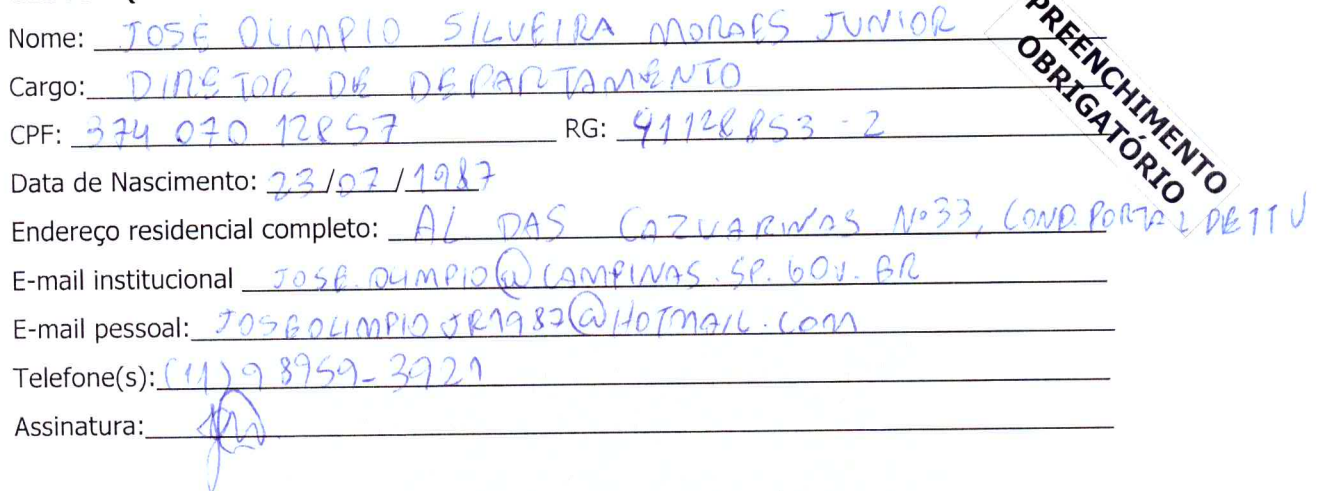 Nome: JOSÉ OLIMPIO SILVEIRA MORAES JUNIOR
Cargo: DIRETOR DE DEPARTAMENTO
CPF: 374 070 128 57 RG: 41128853-2
Data de Nascimento: 23/07/1987
Endereço residencial completo: AL DAS CAZUARINAS Nº33, COND. PORTAL DE ITU
E-mail institucional JOSE.OLIMPIO@CAMPINAS.SP.GOV.BR
E-mail pessoal: JOSEOLIMPIOJR1987@HOTMAIL.COM
Telefone(s): (11) 98959-3921
Assinatura:
PREENCHIMENTO
OBRIGATÓRIO